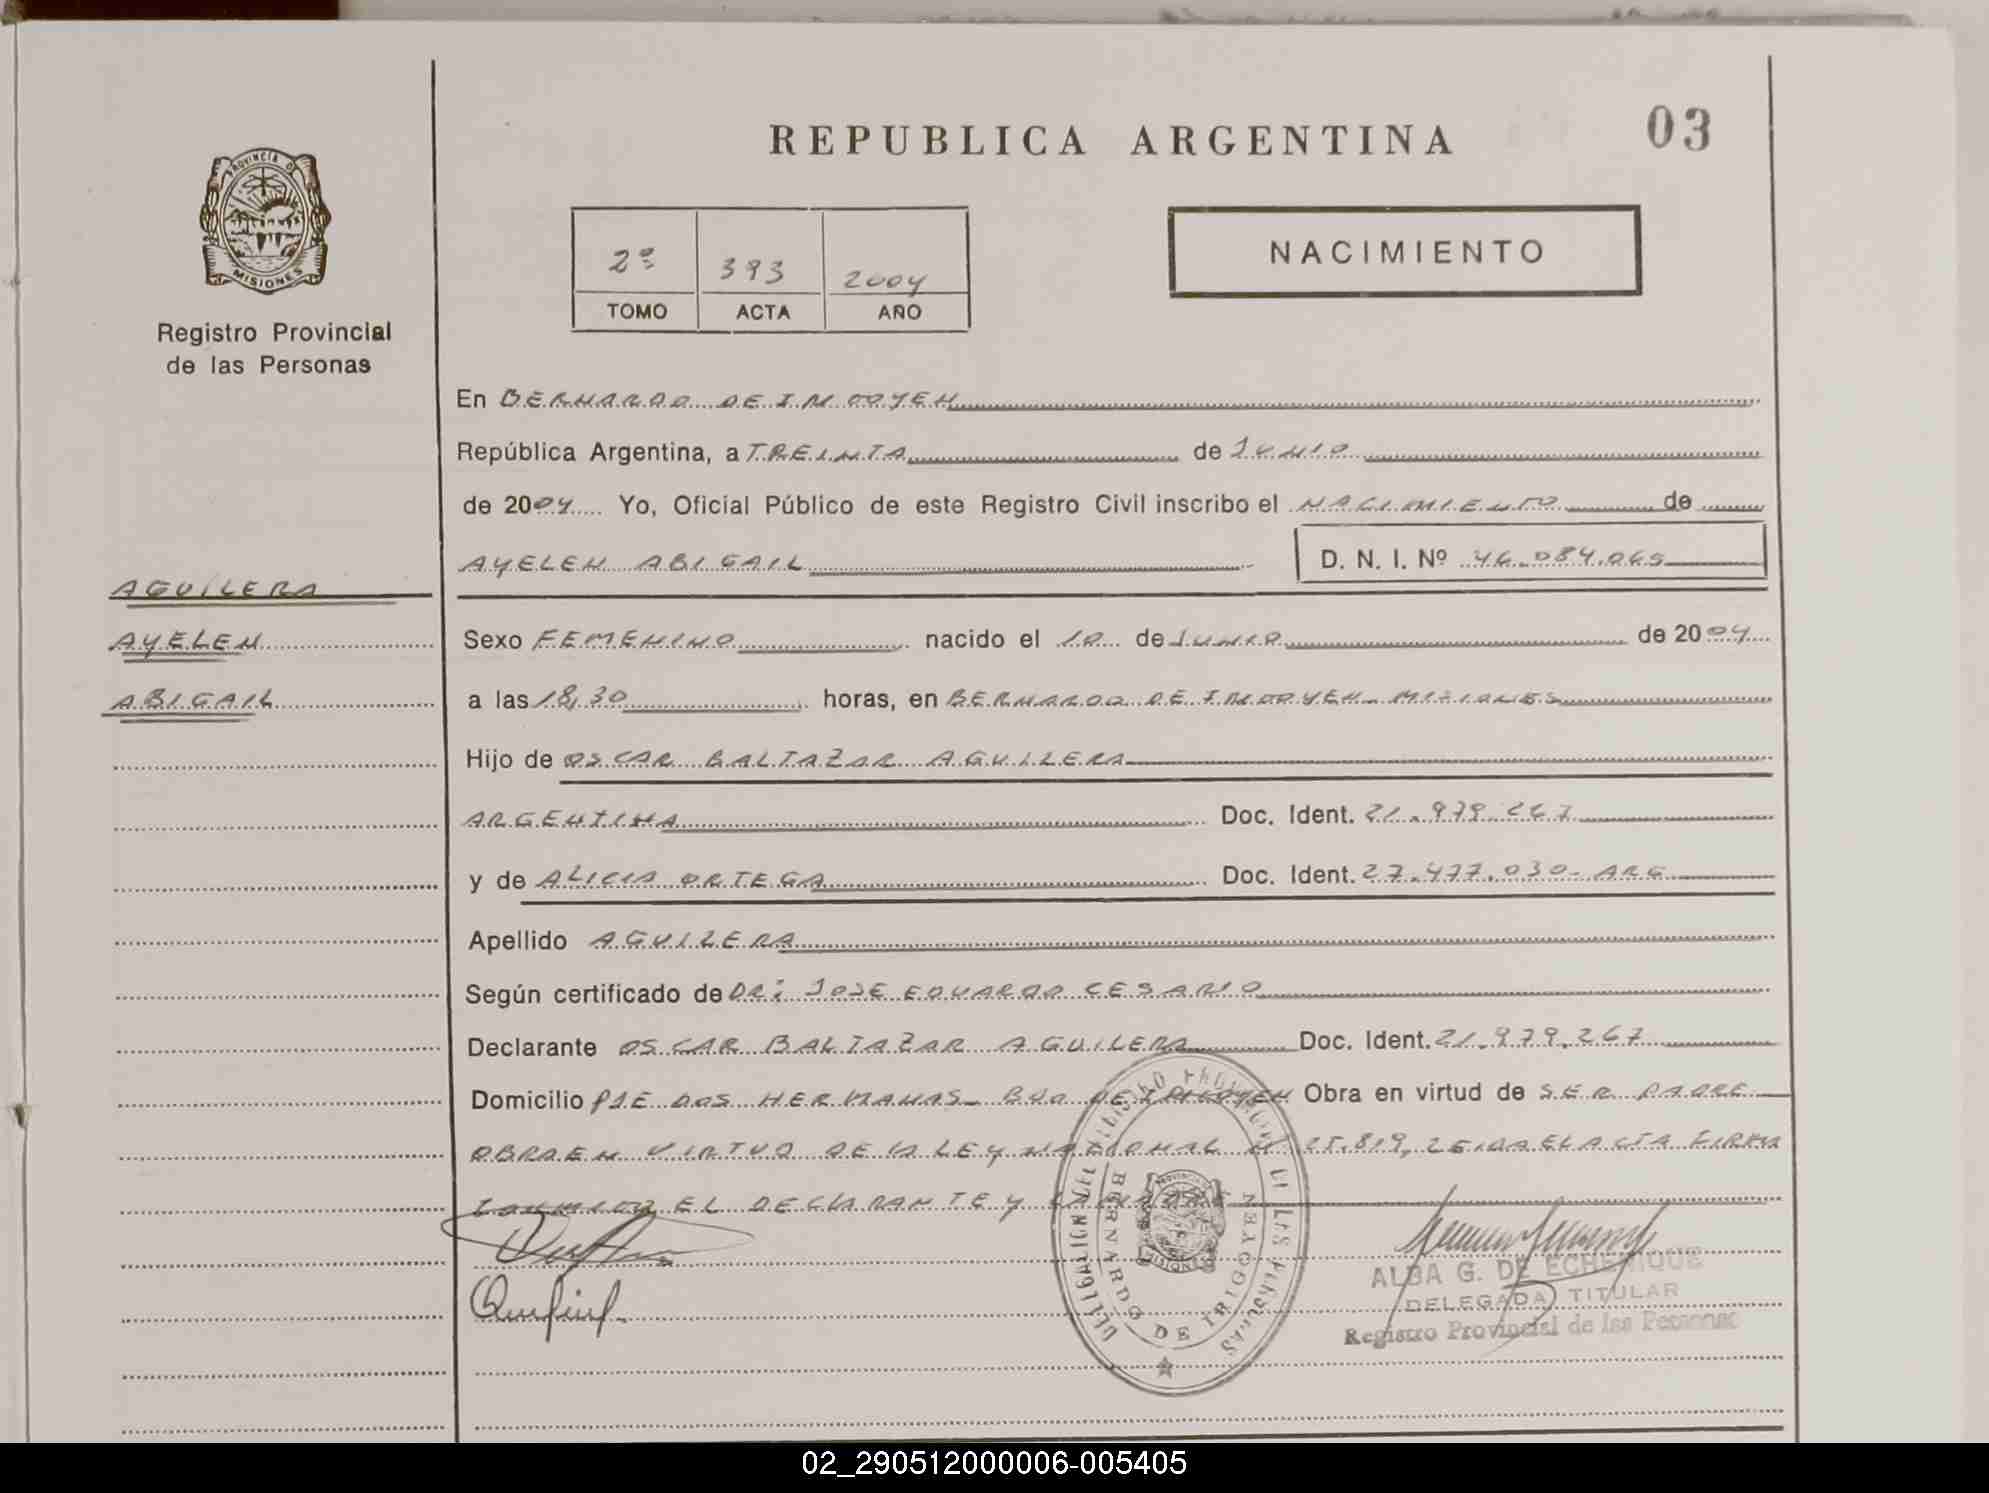 REPUBLICA ARGENTINA
03
PROVINCIA DE
MISIONES
Registro Provincial
de las Personas
2º 393 2004
TOMO ACTA AÑO
NACIMIENTO
En BERNARDO DE IRIGOYEN
República Argentina, a TREINTA de JUNIO
de 2004 Yo, Oficial Público de este Registro Civil inscribo el NACIMIENTO de
AYELEN ABIGAIL D. N. I. Nº 46.084.065
AGUILERA
AYELEN
ABIGAIL
Sexo FEMENINO nacido el 10 de JUNIO de 2004
a las 18,30 horas, en BERNARDO DE IRIGOYEN - MISIONES
Hijo de OSCAR BALTAZAR AGUILERA
ARGENTINA Doc. Ident. 21.979.267
y de ALICIA ORTEGA Doc. Ident. 27.477.030- ARG
Apellido AGUILERA
Según certificado de DR: JOSE EDUARDO CESARIO
Declarante OSCAR BALTAZAR AGUILERA Doc. Ident. 21.979.267
Domicilio PJE DOS HERMANAS - BDO DE IRIGOYEN Obra en virtud de SER PADRE
OBRA EN VIRTUD DE LA LEY NACIONAL Nº 25.819, LEIDA EL ACTA FIRMA
CONMIGO EL DECLARANTE Y
DELEGACION DEL REGISTRO PROVINCIAL DE LAS PERSONAS
BERNARDO DE IRIGOYEN
MISIONES
ALBA G. DE ECHENIQUE
DELEGADA TITULAR
Registro Provincial de las Personas
02_290512000006-005405